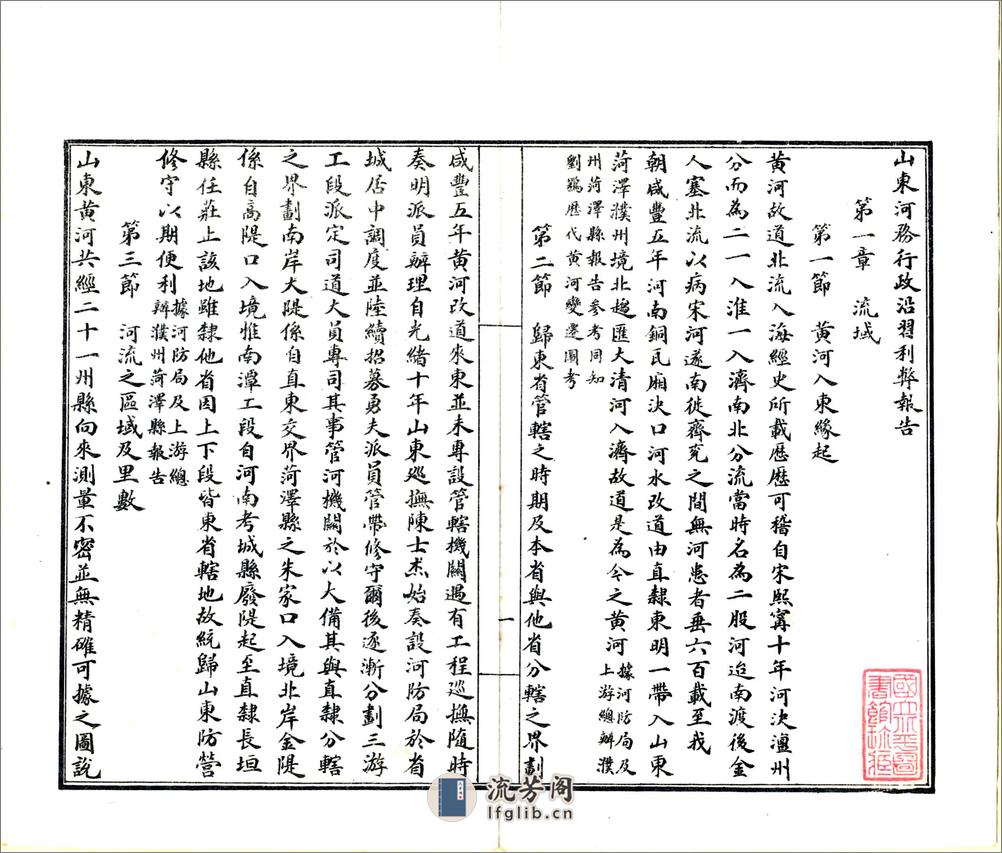 山東河務行政沿習利弊報告
第一章　流域
第一節　黃河入東緣起
黃河故道北流入海經史所載歷歷可稽自宋熙寧十年河決澶州
分而為二一入淮一入濟南北分流當時名為二股河迨南渡後金
人塞北流以病宋河遂南徙齊兗之間無河患者垂六百載至我
朝咸豐五年河南銅瓦廂決口河水改道由直隸東明一帶入山東
菏澤濮州境北趨匯大清河入濟故道是為今之黃河據河防局及上游總辦濮
州菏澤縣報告參考同知
劉鶚歷代黃河變遷圖考
第二節　歸東省管轄之時期及本省與他省分轄之界劃
一
咸豐五年黃河改道來東並未專設管轄機關遇有工程巡撫隨時
奏明派員辦理自光緒十年山東巡撫陳士杰始奏設河防局於省
城居中調度並陸續招募勇夫派員管帶修守爾後逐漸分劃三游
工段派定司道大員專司其事管河機關於以大備其與直隸分轄
之界劃南岸大隄係自直東交界菏澤縣之朱家口入境北岸金隄
係自高隄口入境惟南潭工段自河南考城縣廢隄起至直隸長垣
縣任莊上該地雖隸他省因上下段皆東省轄地故統歸山東防營
修守以期便利據河防局及上游總辦濮州菏澤縣報告
第三節　河流之區域及里數
山東黃河共經二十一州縣向來測量不密並無精確可據之圖說
流芳阁
lfglib.cn